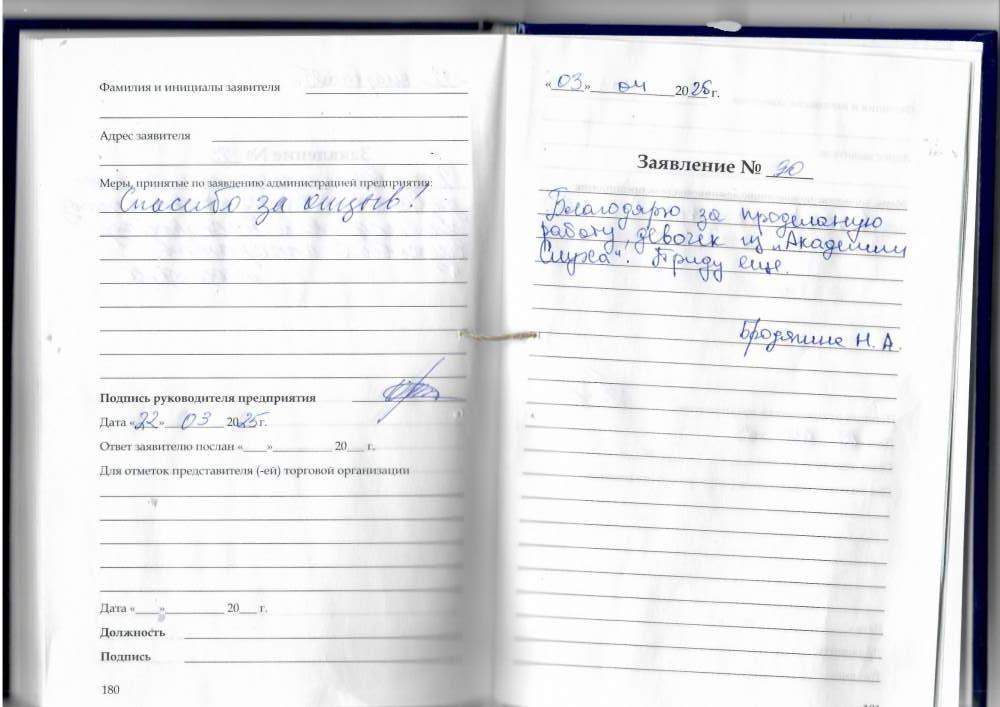 Фамилия и инициалы заявителя
Адрес заявителя
Меры, принятые по заявлению администрацией предприятия:
Спасибо за отзыв!
Подпись руководителя предприятия
Дата «22» 03 2025 г.
Ответ заявителю послан «____»__________ 20___ г.
Для отметок представителя (-ей) торговой организации
Дата «____»__________ 20___ г.
Должность
Подпись
180
«03» 04 2025 г.
Заявление № 90
Благодарю за проделаную
работу, девочек из „Академии
Слуха". Приду еще.
Н. А.